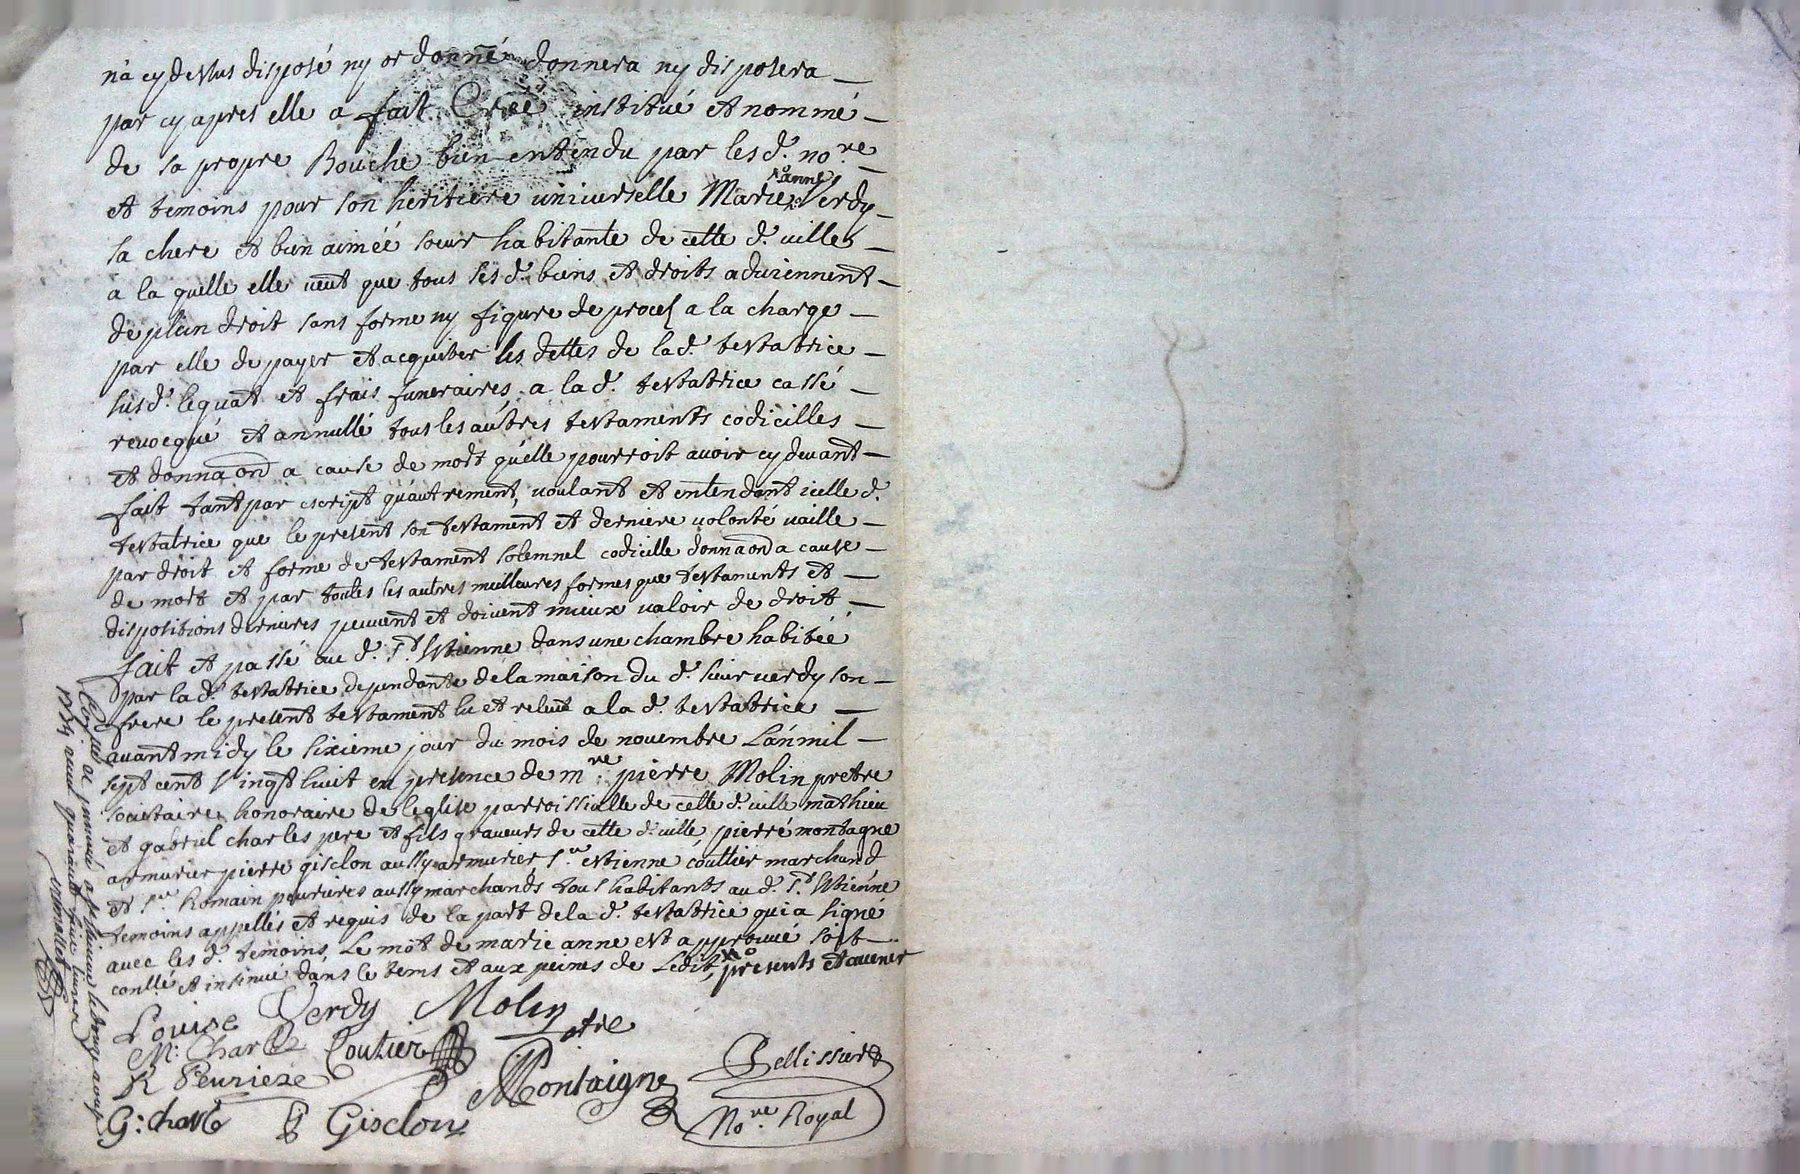 n'a cy dessus disposé ny ordonné donnera ny disposera
par cy apres elle a fait Creé institué et nommé
de sa propre Bouche bien entendu par les d. no.re
et temoins pour son heritiere universelle Marie anne Verdy
sa chere et bien aimée soeur habitante de cette d. ville
a la quelle elle veut que tous ses d. biens et droits adviennent
de plein droit sans forme ny figure de proces a la charge
par elle de payer et acquiter les dettes de la d. testatrice
sus d. lequat et frais funeraires, a la d. testatrice cassé
revocqué et annullé tous les autres testaments codicilles
et donnaon a cause de mort qu'elle pourroit avoir cy devant
fait tant par escript qu'autrement, voulant et entendant icelle d.
testatrice que le present son testament et derniere volonté vaille
par droit et forme de testament solemnel codicille donnaon a cause
de mort et par toutes les autres meilleures formes que testaments et
dispositions dernieres peuvent et doivent mieux valoir de droit
fait et passé au d. S.t Etienne dans une chambre habitéé
par la d. testatrice dependante de la maison du d. sieur verdy son
frere le present testament lu et releut a la d. testatrice
avant midy le sixieme jour du mois de novembre L'an mil
sept cent vingt huit en presence de m.re pierre Molin pretre
societaire honoraire de l'eglise parroissialle de cette d. ville mathieu
et gabriel charles pere et fils graveurs de cette d. ville pierre montagne
armurier pierre gisclon aussy armurier s.r estienne couttier marchand
et s.r Romain peurieres aussy marchands tous habitants au d. S.t Etienne
temoins appellés et requis de la part de la d. testatrice qui a signé
avec les d. temoins, Le mot de marie anne est approuvé soit
conllé et insinué dans le tems et aux peines de L'edit, presents et avenir
Louise Verdy Molin ptre
M: Charle Coutier
R Peurieze Montaigne Pellissier
G: charle P Gisclon No.re Royal